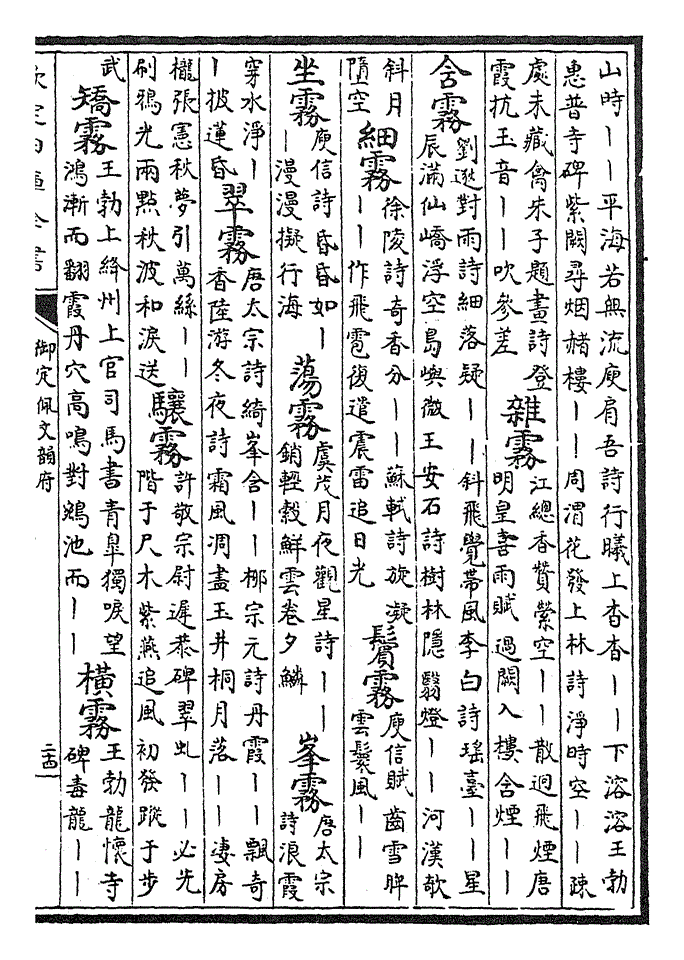 山時丨丨平海若無流庾肩吾詩行曦上杳杳丨丨下溶溶王勃
惠普寺碑紫闕尋烟赭樓丨丨周渭花發上林詩淨時空丨丨疎
處未藏禽朱子題畫詩登
霞抗玉音丨丨吹參差
雜霧
江總香贊縈空丨丨散迥飛煙唐
明皇喜雨賦過闕入樓含煙丨丨
含霧
劉遜對雨詩細落疑丨丨斜飛覺帶風李白詩瑤臺丨丨星
辰滿仙嶠浮空島嶼微王安石詩樹林隱翳燈丨丨河漢欹
斜月
墮空
細霧
徐陵詩奇香分丨丨蘇軾詩旋凝
丨丨作飛雹復遣震雷追日光
鬢霧
庾信賦齒雪脾
雲鬟風丨丨
坐霧
庾信詩昏昏如丨
丨漫漫擬行海
蕩霧
虞茂月夜觀星詩丨丨
銷輕縠鮮雲卷夕鱗
峯霧
唐太宗
詩浪霞
穿水淨丨
丨披蓮昏
翠霧
唐太宗詩綺峯含丨丨柳宗元詩丹霞丨丨飄奇
香陸游冬夜詩霜風凋盡玉井桐月落丨丨淒房
櫳張憲秋夢引萬絲丨丨
刷鴉光兩點秋波和淚送
驤霧
許敬宗尉遲恭碑翠虬丨丨必先
階于尺木紫燕追風初發蹤于步
武
矯霧
王勃上絳州上官司馬書青皐獨唳望
鴻漸而翻霞丹穴高鳴對鵷池而丨丨
橫霧
王勃龍懷寺
碑毒龍丨丨
欽定四庫全書
御定佩文韻府
二十四